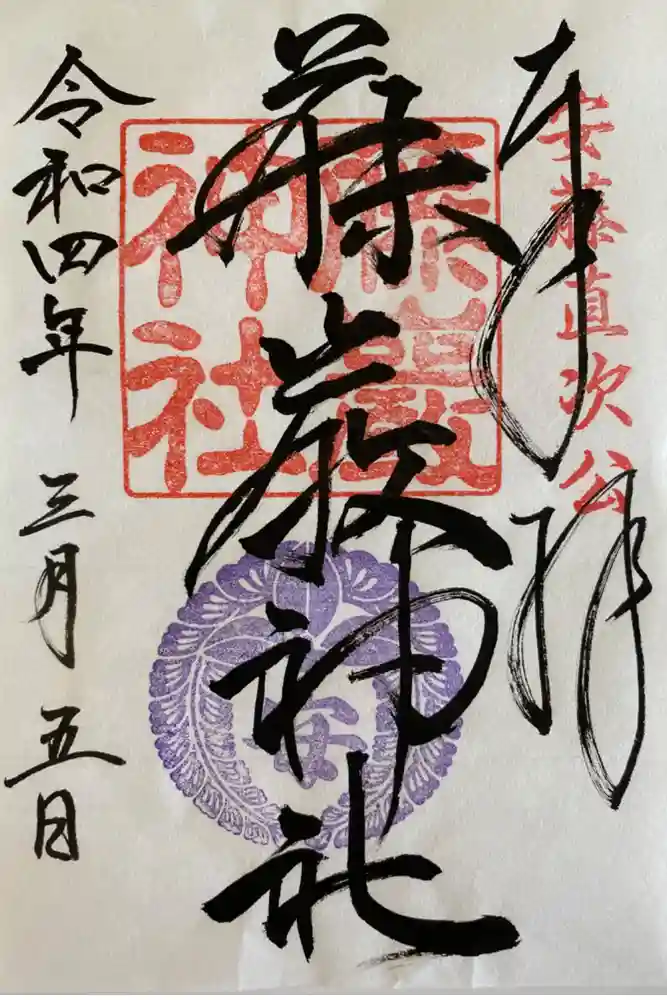 奉拝
安藤直次公
藤巖神社
藤巖神社
安
令和四年三月五日